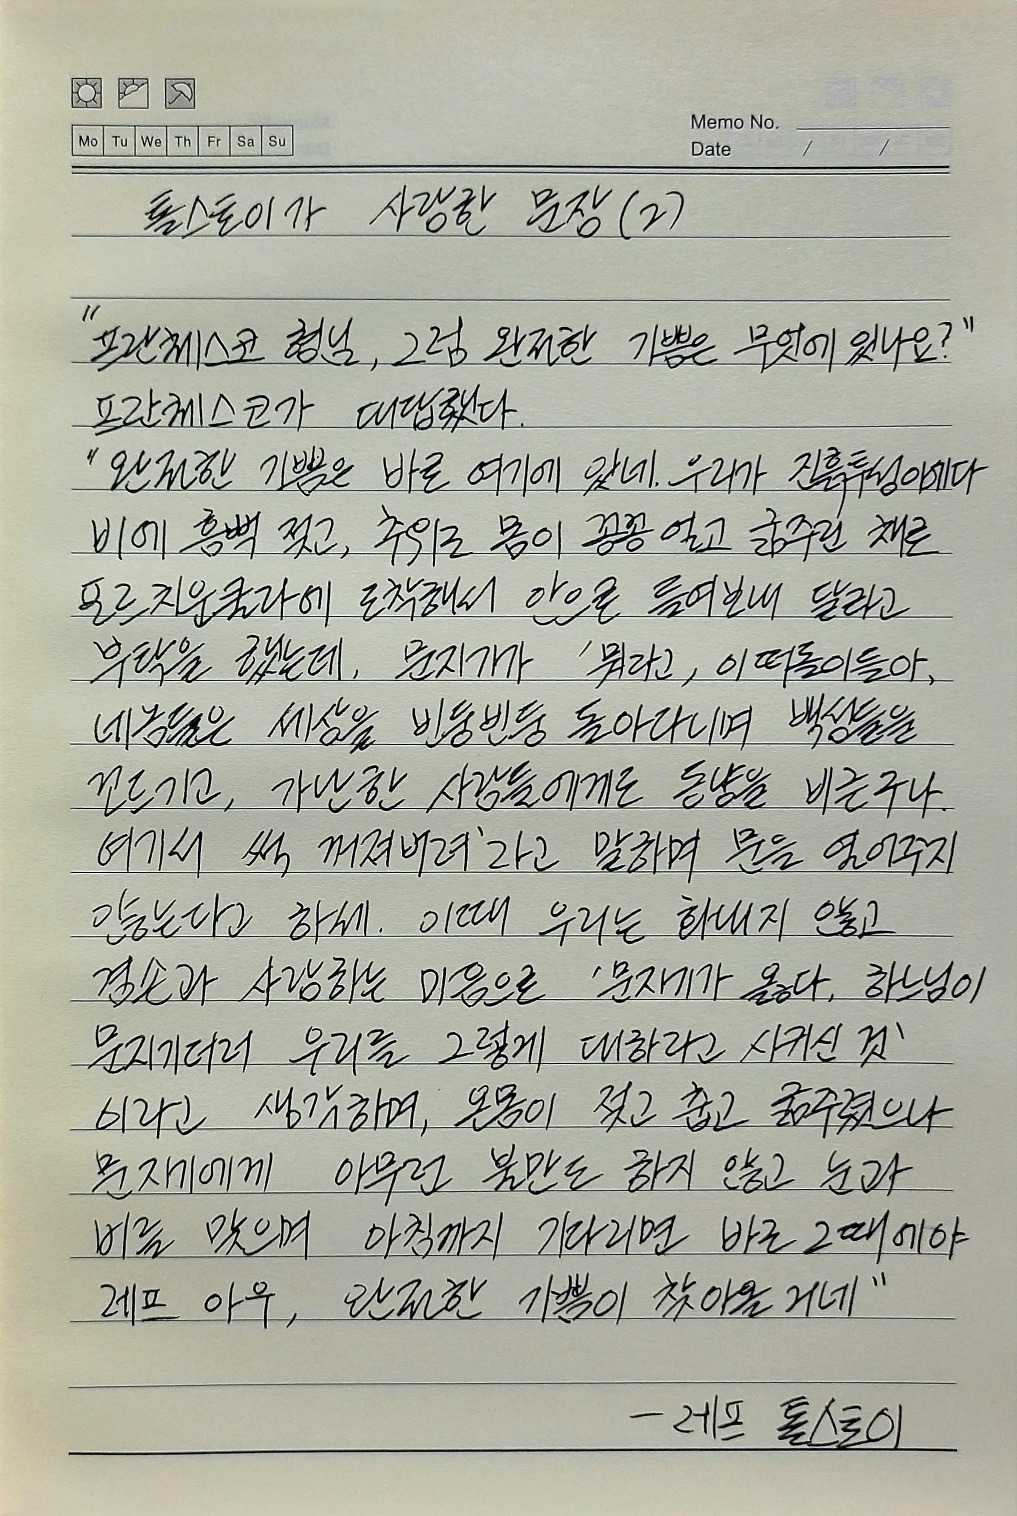 Mo Tu We Th Fr Sa Su
Memo No.
Date / /
톨스토이가 사랑한 문장(2)
"프란체스코 형님, 그럼 완전한 기쁨은 무엇에 있나요?"
프란체스코가 대답했다.
"완전한 기쁨은 바로 여기에 있네. 우리가 진흙투성이에다
비에 흠뻑 젖고, 추위로 몸이 꽁꽁 얼고 굶주린 채로
포르치운쿨라에 도착해서 안으로 들여보내 달라고
부탁을 했는데, 문지기가 '뭐라고, 이 떠돌이들아,
네놈들은 세상을 빈둥빈둥 돌아다니며 백성들을
건드리고, 가난한 사람들에게도 동냥을 비는구나.
여기서 썩 꺼져버려'라고 말하며 문을 열어주지
않는다고 하세. 이때 우리는 화내지 않고
겸손과 사랑하는 마음으로 '문지기가 옳다. 하느님이
문지기더러 우리를 그렇게 대하라고 시키신 것'
이라고 생각하며, 온몸이 젖고 춥고 굶주렸으나
문지기에게 아무런 불만도 하지 않고 눈과
비를 맞으며 아침까지 기다리면 바로 그때에야
레프 아우, 완전한 기쁨이 찾아올 거네"
- 레프 톨스토이